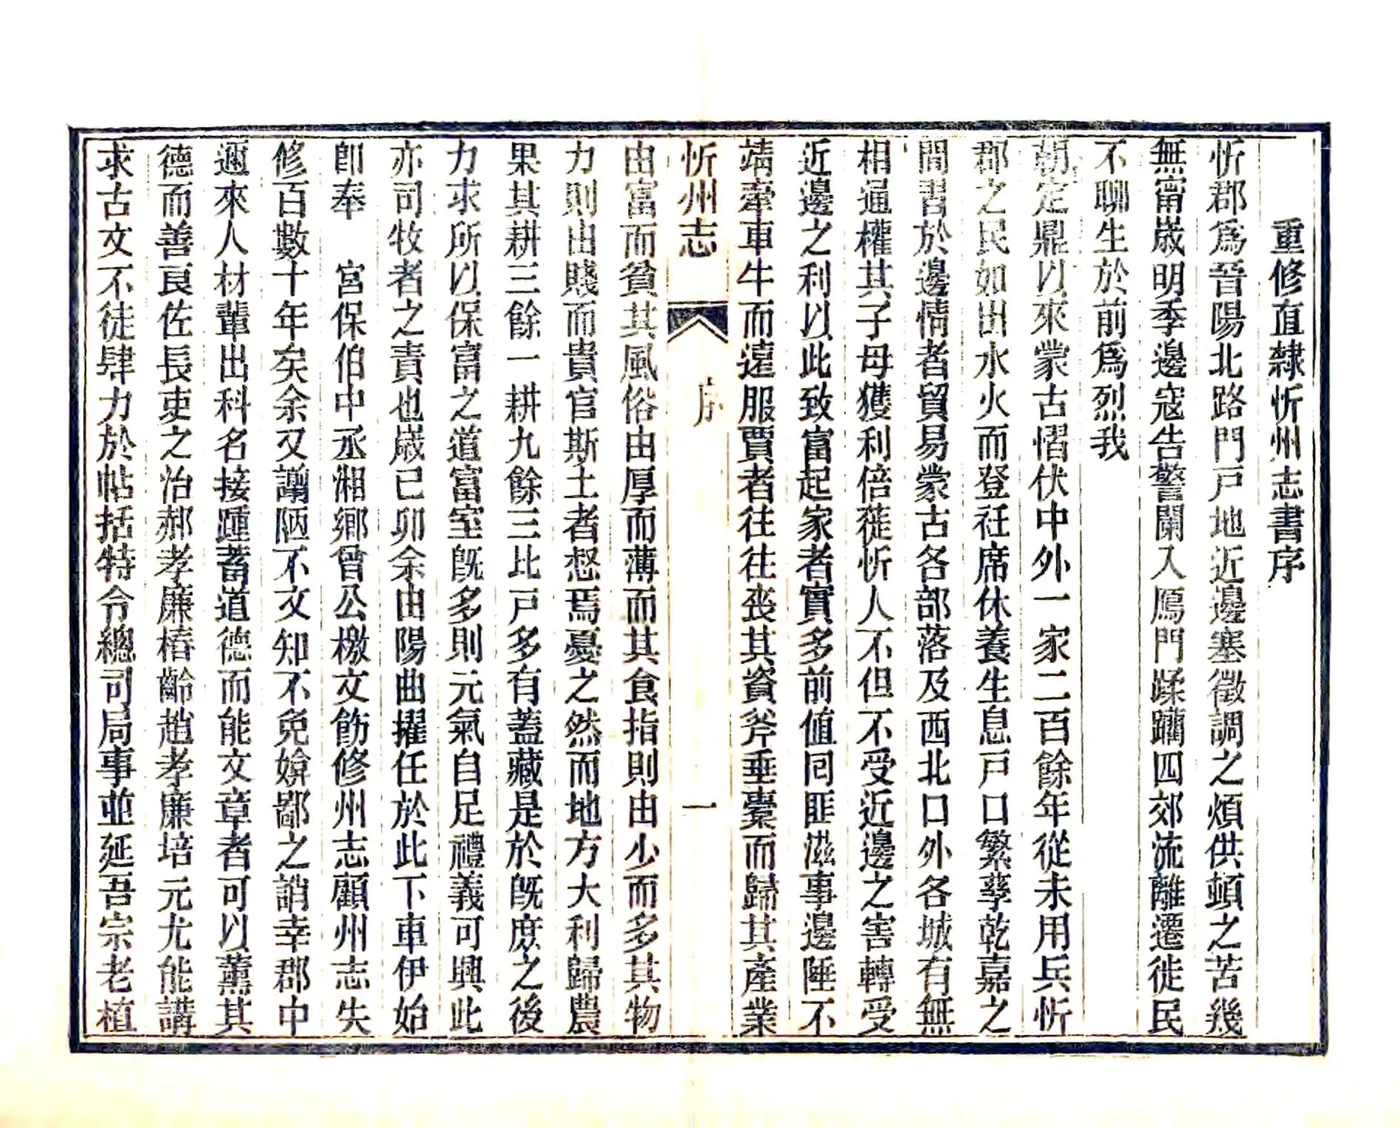 重修直隸忻州志書序
忻郡爲晉陽北路門戸地近邊塞徵調之煩供頓之苦幾
無甯歲明季邊寇告警闌入鴈門蹂躪四郊流離遷徙民
不聊生於前爲烈我
朝定鼎以來蒙古慴伏中外一家二百餘年從未用兵忻
郡之民如出水火而登衽席休養生息戸口繁孳乾嘉之
間習於邊情者貿易蒙古各部落及西北口外各城有無
相通權其子母獲利倍蓰忻人不但不受近邊之害轉受
近邊之利以此致富起家者實多前値回匪滋事邊陲不
靖牽車牛而遠服賈者往往喪其資斧垂橐而歸其產業
忻州志
序
一
由富而貧其風俗由厚而薄而其食指則由少而多其物
力則由賤而貴官斯土者惄焉憂之然而地方大利歸農
果其耕三餘一耕九餘三比戸多有蓋藏是於旣庶之後
力求所以保富之道富室旣多則元氣自足禮義可興此
亦司牧者之責也歲己卯余由陽曲擢任於此下車伊始
卽奉　宮保伯中丞湘鄉曾公檄文飭修州志顧州志失
修百數十年矣余又譾陋不文知不免媕鄙之誚幸郡中
邇來人材輩出科名接踵蓄道德而能文章者可以薰其
德而善良佐長吏之治郝孝廉椿齡趙孝廉培元尤能講
求古文不徒肆力於帖括特令總司局事並延吾宗老植